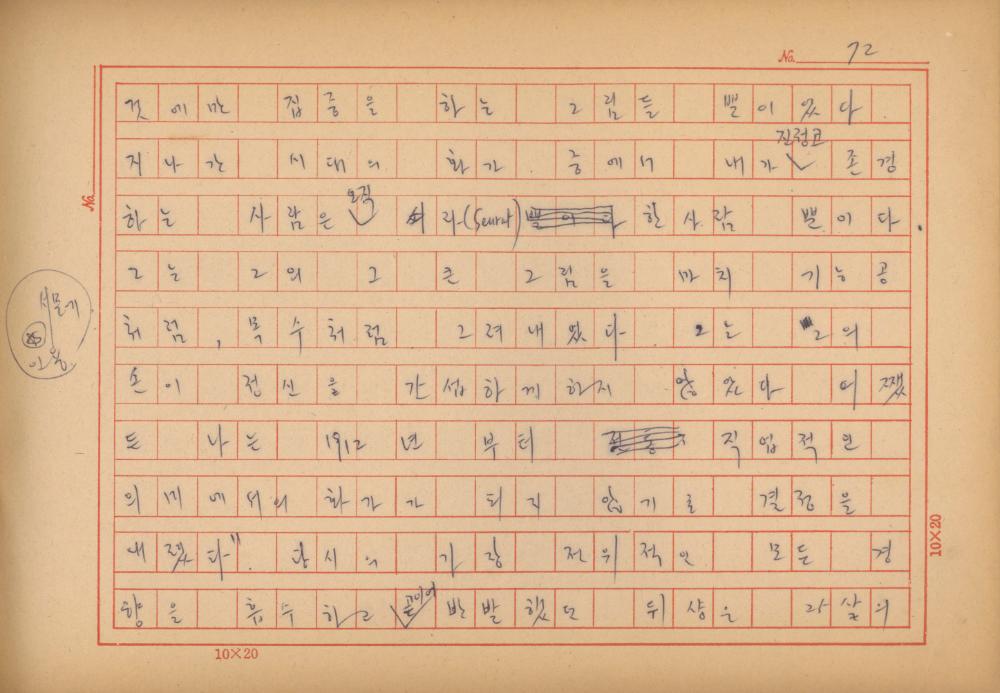 No. 72
것에만 집중을 하는 그림들 뿐이었다.
지나간 시대의 화가 중에서 내가 진정코 존경
하는 사람은 오직 쇠라(Seurat) 한 사람 뿐이다.
그는 그의 그 큰 그림을 마치 기능공
처럼, 목수처럼 그려내었다. 그는 그의
손이 정신을 간섭하게 하지 않았다. 어쨌
든 나는 1912년부터 직업적인
의미에서의 화가가 되지 않기로 결정을
내렸다". 당시의 가장 전위적인 모든 경
향을 흡수하고 곧이어 반발했던 뒤샹은 라살의
No.
인용
10×20
10×20